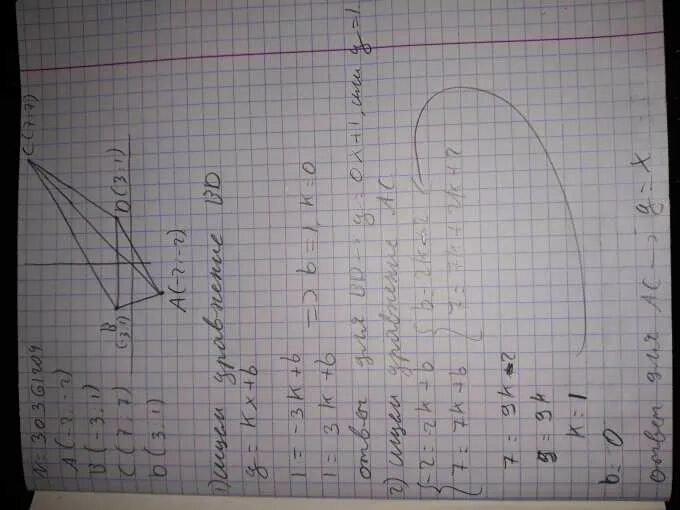 N: 30361209
A (-2; -2)
B (-3; 1)
C (7; 7)
D (3; 1)
C (7; 7)
B
(-3; 1)
D (3; 1)
A (-2; -2)
1) ищем уравнение BD
y = kx + b
1 = -3k + b
1 = 3k + b => b = 1, k = 0
ответ для BD → y = 0x + 1, или y = 1
2) ищем уравнение AC
-2 = -2k + b { b = 2k - 2
7 = 7k + b
7 = 9k - 2
9 = 9k
k = 1
b = 0
ответ для AC → y = x